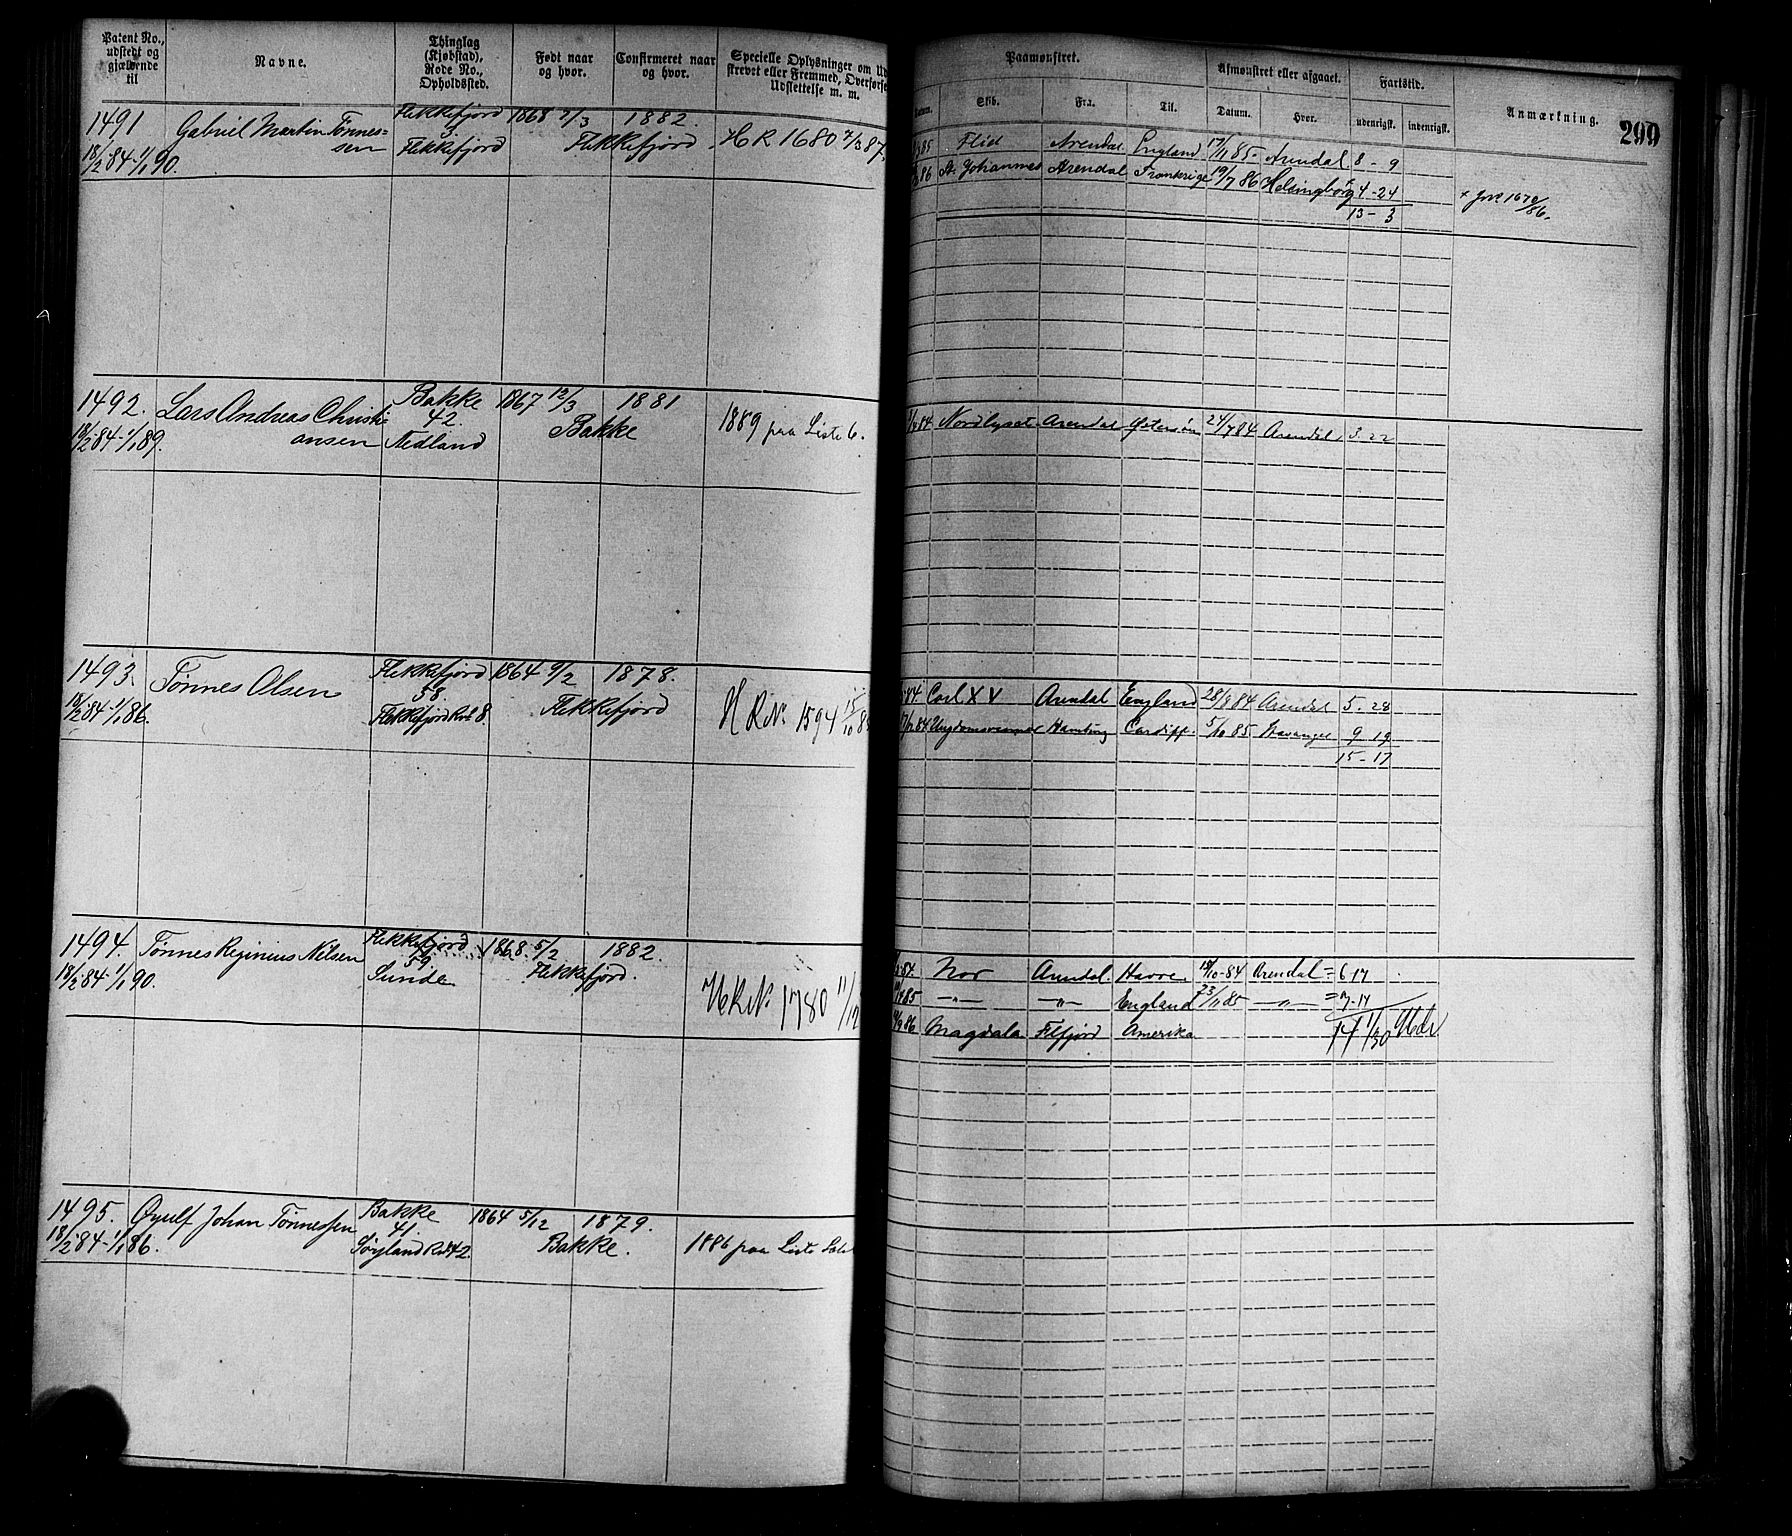 Patent No., udstedt og gjældende til
Navne.
Thinglag (Kjøbstad), Rode No., Opholdssted.
Født naar og hvor.
Confirmeret naar og hvor.
Specielle Oplysninger om Ud-
strevet eller Fremmed, Overførse
Udslettelse m. m.
Paamønstret.
Afmønstret eller afgaaet.
Fartstid.
Anmærkning.
299
Datum. Skib. Fra. Til. Datum. Hvor. udenrigsk. indenrigsk.
1491 Gabriel Martin Tønnes= Flekkefjord 1868 7/3 1882.
18/2 84-1/1 90. sen 3 Flekkefjord Flekkefjord HR 1680 7/3 87.
85 Flid Arendal England 17/11 85 Arendal 8 - 9
86 St. Johannes Arendal Frankrige 19/7 86 Helsingborg x 4-24
13 - 3
1492. Lars Andreas Christi Bakke 1867 12/3 1881
18/2 84-1/1 89. ansen 42. Nedland Bakke 1889 paa Liste 6.
84 Nordlyset Arendal 24/7 84 Arendal 3. 22
1493. Tønnes Olsen Flekkefjord 1864 9/2 1878.
18/2 84-1/1 86. 58 Flekkefjord Flekkefjord HR No. 1594 15/10 85
84. Carl XV Arendal England 28/8 84 Arendal 5 - 28
84 Ungdomsvennen Cardiff. 5/10 85 Stavanger 9 19
15 - 17
1494. Tønnes Reginius Nilsen Flekkefjord 1868 5/2 1882.
18/2 84-1/1 90. 59 Sunde Flekkefjord. HR No. 1780 11/12
84. Nor Arendal. Havre 18/10-84 Arendal = 6 17
85 —"— —"— England 23/11 85 —"— = 7-14
86 Magdala Amerika
1495. Øyulf Johan Tønnessen Bakke 1864 5/12 1879.
18/2 84-1/1 86. 41 Bakke. 1886 paa Liste